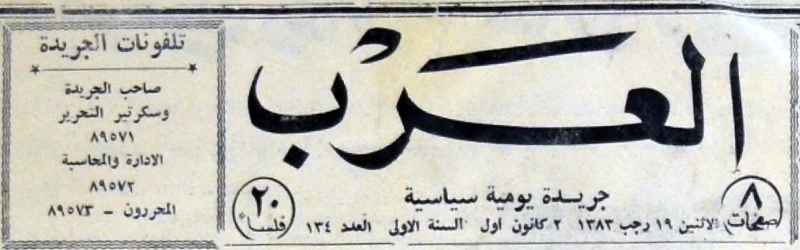 العرب
جريدة يومية سياسية
٨ صفحات
الاثنين ١٩ رجب ١٣٨٣ ٢ كانون اول السنة الاولى العدد ١٣٤
٢٠ فلسا
تلفونات الجريدة
صاحب الجريدة
وسكرتير التحرير
٨٩٥٧١
الادارة والمحاسبة
٨٩٥٧٢
المحررون - ٨٩٥٧٣